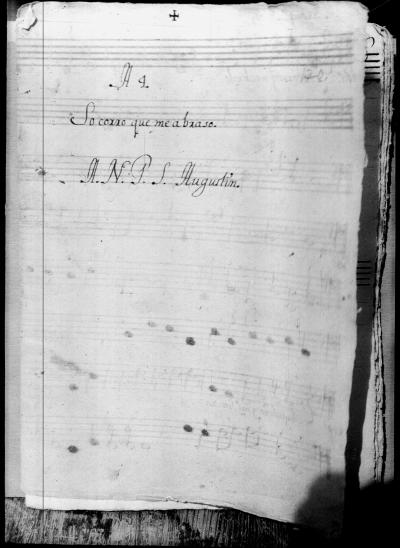 A 4.
Socorro que me abraso.
A. N. P. S. Augustin.